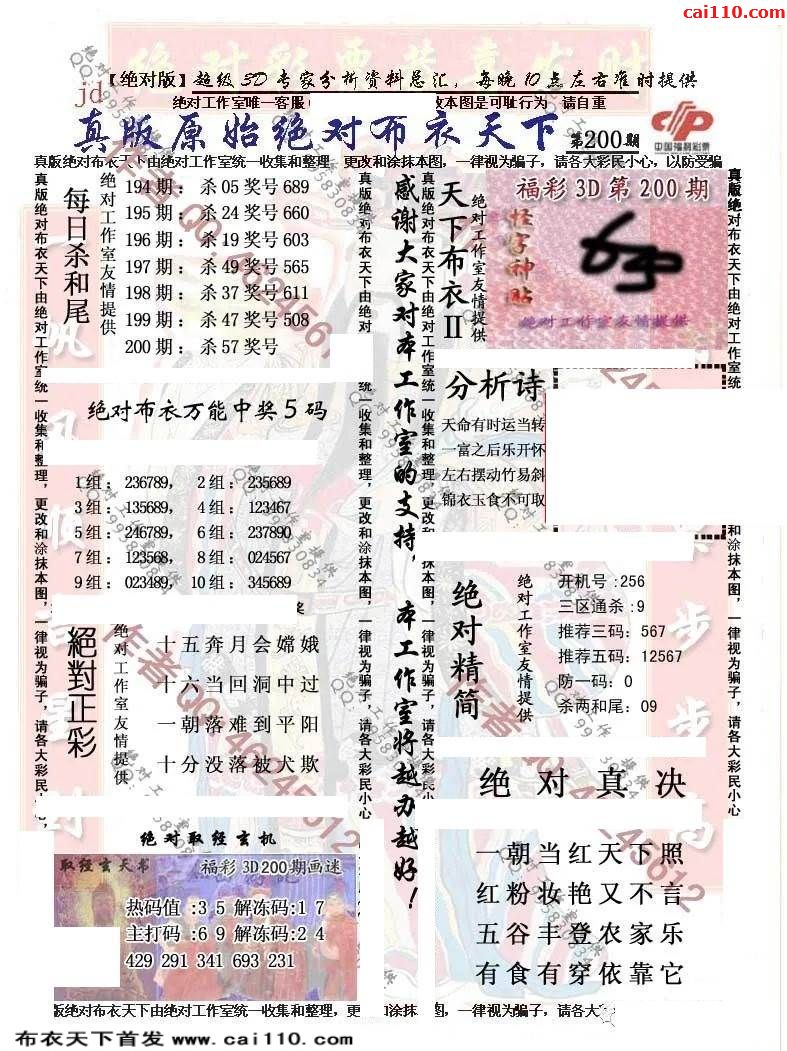 cai110.com
【绝对版】超级3D专家分析资料总汇，每晚10点左右准时提供
jd
绝对工作室唯一客服
改本图是可耻行为 请自重
真版原始绝对布衣天下
第200期
中国福利彩票
真版绝对布衣天下由绝对工作室统一收集和整理，更改和涂抹本图，一律视为骗子，请各大彩民小心，以防受骗
每日杀和尾
绝对工作室友情提供
194期：杀05奖号689
195期：杀24奖号660
196期：杀19奖号603
197期：杀49奖号565
198期：杀37奖号611
199期：杀47奖号508
200期：杀57奖号
天下布衣II
绝对工作室友情提供
福彩3D第200期
怪字神贴
绝对工作室友情提供
感谢大家对本工作室的支持，本工作室将越办越好！
绝对布衣万能中奖5码
1组：236789， 2组：235689
3组：135689， 4组：123467
5组：246789， 6组：237890
7组：123568， 8组：024567
9组：023489，10组：345689
分析诗
天命有时运当转
一富之后乐开怀
左右摆动竹易斜
锦衣玉食不可取
絕對正彩
绝对工作室友情提供
十五奔月会嫦娥
十六当回洞中过
一朝落难到平阳
十分没落被犬欺
绝对精简
绝对工作室友情提供
开机号:256
三区通杀:9
推荐三码：567
推荐五码：12567
防一码：0
杀两和尾：09
绝对真决
一朝当红天下照
红粉妆艳又不言
五谷丰登农家乐
有食有穿依靠它
绝对取经玄机
取经玄天书
福彩3D200期画迷
热码值:35解冻码:17
主打码:69解冻码:24
429 291 341 693 231
真版绝对布衣天下由绝对
统一收集和整理，更改和涂抹本图，一律视为骗子，请各大彩民小心
版绝对布衣天下由绝对工作室统一收集和整理，更
改和涂抹
图，一律视为骗子，请各大
布衣天下首发 www.cai110.com